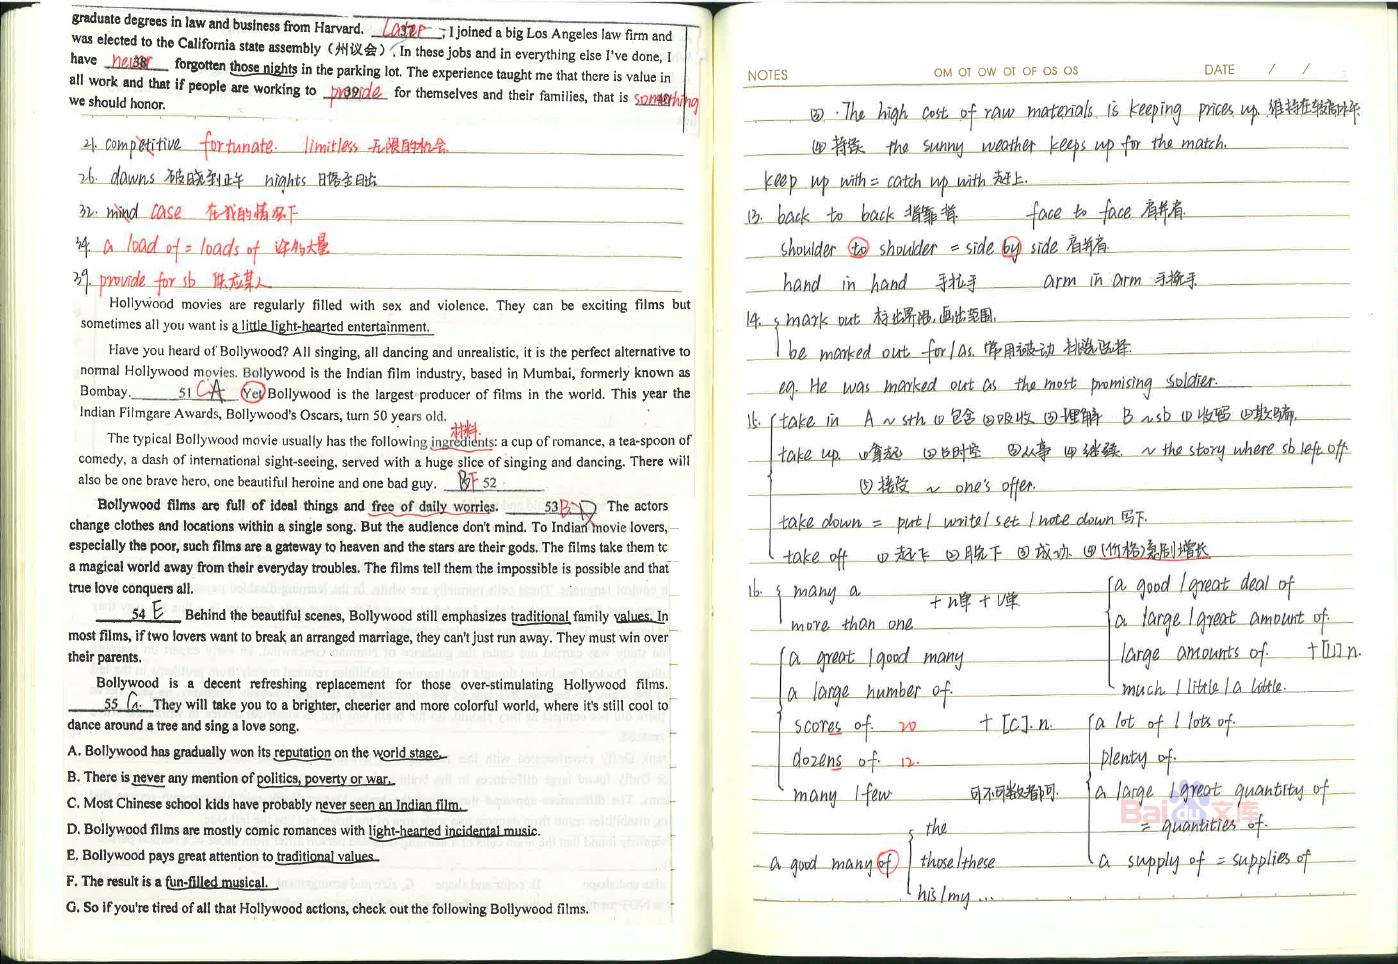 graduate degrees in law and business from Harvard. Later, I joined a big Los Angeles law firm and
was elected to the California state assembly (州议会). In these jobs and in everything else I've done, I
have never 38 forgotten those nights in the parking lot. The experience taught me that there is value in
all work and that if people are working to provide 39 for themselves and their families, that is something 40
we should honor.
21. competitive fortunate. limitless 无限的机会
26. dawns 破晓到正午 nights 日落至日出
32. mind case 在我的情况下
34. a load of = loads of 许多大量
39. provide for sb 供应某人
Hollywood movies are regularly filled with sex and violence. They can be exciting films but
sometimes all you want is a little light-hearted entertainment.
Have you heard of Bollywood? All singing, all dancing and unrealistic, it is the perfect alternative to
normal Hollywood movies. Bollywood is the Indian film industry, based in Mumbai, formerly known as
Bombay. 51 C A Yet Bollywood is the largest producer of films in the world. This year the
Indian Filmgare Awards, Bollywood's Oscars, turn 50 years old.
材料.
The typical Bollywood movie usually has the following ingredients: a cup of romance, a tea-spoon of
comedy, a dash of international sight-seeing, served with a huge slice of singing and dancing. There will
also be one brave hero, one beautiful heroine and one bad guy. B F 52
Bollywood films are full of ideal things and free of daily worries. 53 B D The actors
change clothes and locations within a single song. But the audience don't mind. To Indian movie lovers,
especially the poor, such films are a gateway to heaven and the stars are their gods. The films take them to
a magical world away from their everyday troubles. The films tell them the impossible is possible and that
true love conquers all.
54 E Behind the beautiful scenes, Bollywood still emphasizes traditional family values. In
most films, if two lovers want to break an arranged marriage, they can't just run away. They must win over
their parents.
Bollywood is a decent refreshing replacement for those over-stimulating Hollywood films.
55 G. They will take you to a brighter, cheerier and more colorful world, where it's still cool to
dance around a tree and sing a love song.
A. Bollywood has gradually won its reputation on the world stage.
B. There is never any mention of politics, poverty or war.
C. Most Chinese school kids have probably never seen an Indian film.
D. Bollywood films are mostly comic romances with light-hearted incidental music.
E. Bollywood pays great attention to traditional values.
F. The result is a fun-filled musical.
G. So if you're tired of all that Hollywood actions, check out the following Bollywood films.
NOTES OM OT OW OT OF OS OS DATE / /
③ . The high cost of raw materials is keeping prices up. 维持在较高水平
④ 持续 the sunny weather keeps up for the match.
keep up with = catch up with 赶上.
13. back to back 背靠背 face to face 肩并肩.
shoulder to shoulder = side by side 肩并肩.
hand in hand 手拉手 arm in arm 手挽手
14. mark out 标出界限, 画出范围.
be marked out for / as. 常用被动 挑选选择.
eg. He was marked out as the most promising soldier.
15. take in A ~ sth ① 包含 ② 吸收 ③ 理解 B ~ sb ① 收留 ② 欺骗.
take up. ① 拿起 ② 占时空 ③ 从事 ④ 继续. ~ the story where sb left off
⑤ 接受 ~ one's offer.
take down = put / write / set / note down 写下.
take off ① 起飞 ② 脱下 ③ 成功. ④ (价格)急剧增长
16. many a
more than one
+ n单 + v单
a great / good many
a large number of.
scores of. 20
dozens of. 12.
many / few
+ [C]. n.
a good / great deal of
a large / great amount of.
large amounts of.
much / little / a little.
+ [U] n.
a lot of / lots of.
plenty of.
a large / great quantity of
= quantities of.
a supply of = supplies of
可不可数者都可.
- a good many of
the
those / these
his / my ...
Bai 文库